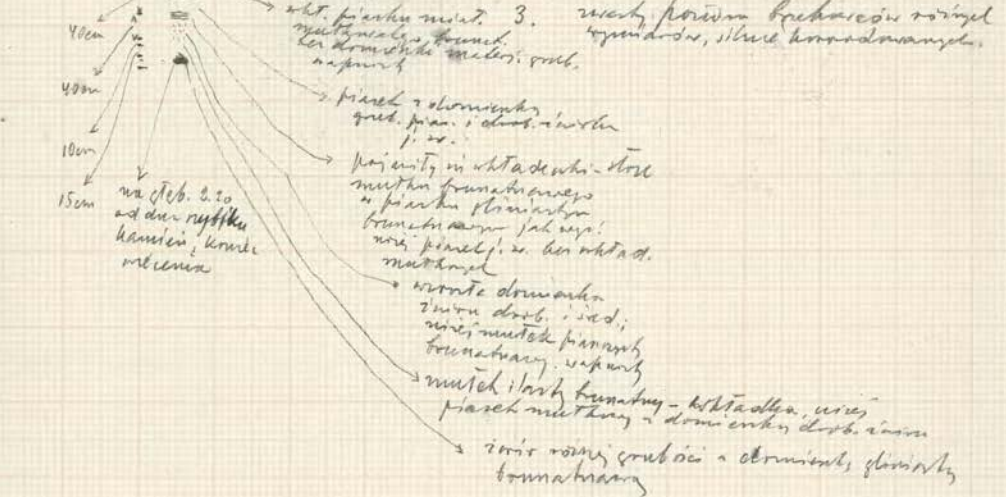 40cm
40cm
10cm
15cm
na głęb. 2.20
od dna szybiku
kamień, koniec
wiercenia
wkł. piasku
mułkowatego, brunat.
bez domieszki mater. grub.
wapnisty
3. zwarty poziom
wymiarów, silnie korodowanych.
piasek z domieszką
grub. pias. i drob. żwirku
j. w.
pojawiły się wkładeczki
mułku brunatnawego
w piasku gliniastym
brunatnawym jak wyż.
niżej piasek j. w. bez wkład.
mułkowych
wzrosła domieszka
żwiru drob. i śred.;
niżej mułek piaszczysty
brunatnawy. wapnisty
mułek ilasty brunatny - wkładka, niżej
piasek mułkowy z domieszką drob. żwiru
żwir różnej grubości z domieszką gliniasty
brunatnawy